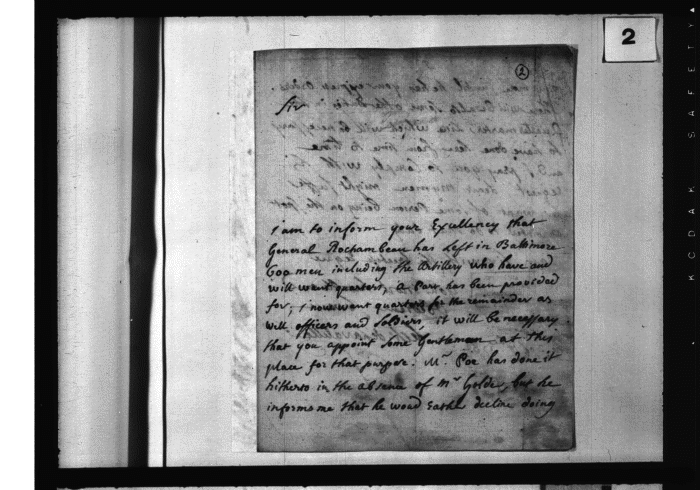 2
2
Sir
I am to inform your Excellency that
General Rochambeau has Left in Baltimore
600 men including the Artillery who have and
will want quarters, a Part has been provided
for; I now want quarters for the remainder as
well officers and Soldiers, it will be necessary
that you appoint some Gentleman at this
place for that purpose. Mr. Poe has done it
hitherto in the absence of Mr Golde, but he
informs me that he woud rather decline doing
KODAK SAFETY